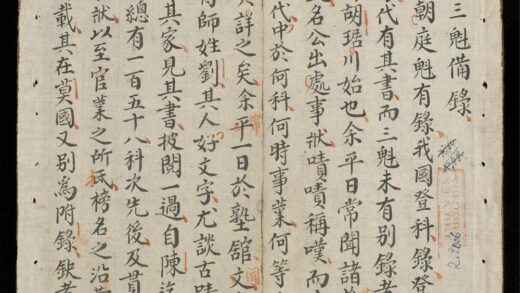 三魁備錄
朝庭魁有錄我國登科錄登
代有其書而三魁未有別錄者
胡琚川始也余平日常聞諸
名公出處事狀嘖嘖稱嘆而
代中於何科何時事業何等
詳之矣余平一日於塾舘文
師姓劉其人好文字尤談古
其家見其書披閱一過自陳迄
總有一百五十八科次先後及貫
狀以至官業之所氏榜名之沿
載其在莫國又別爲附錄缺者